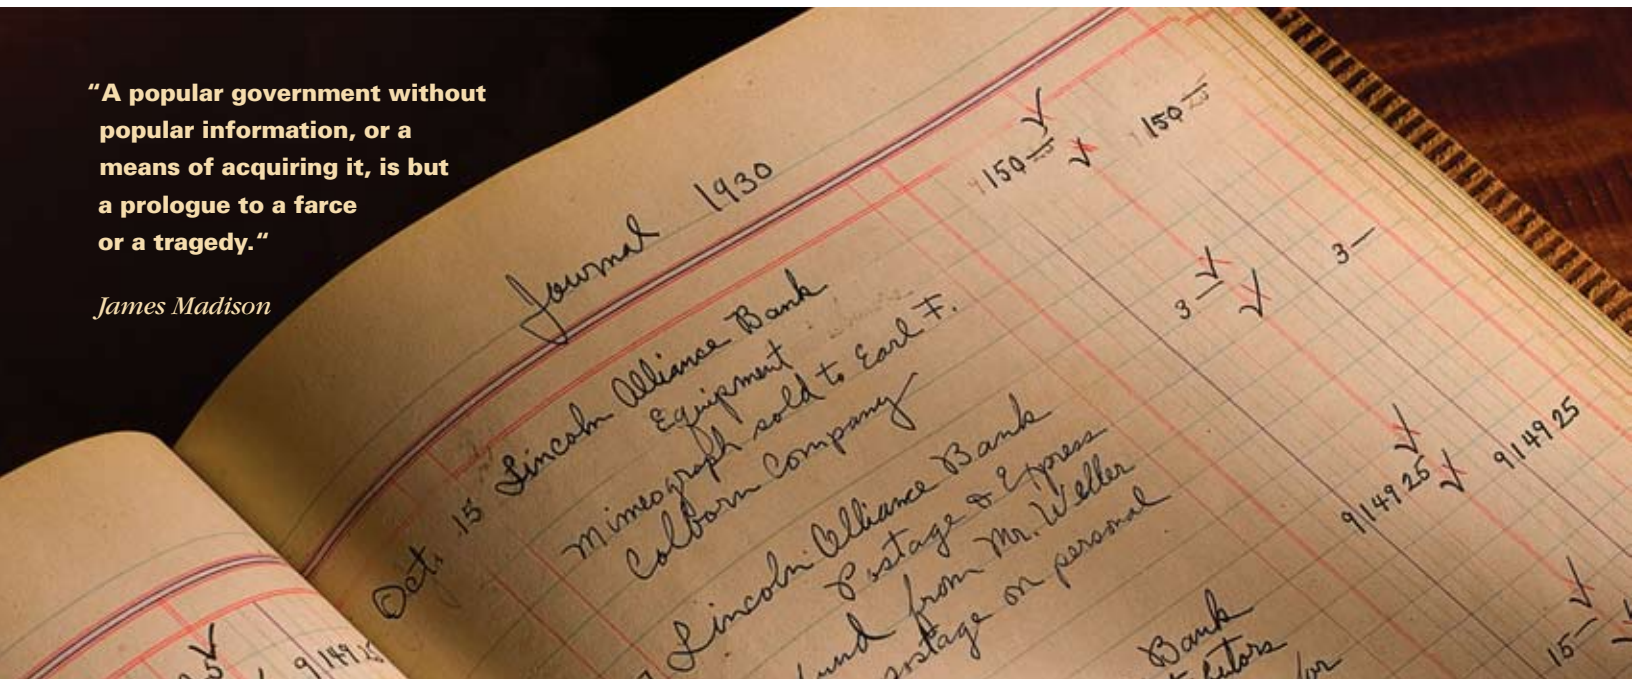 “A popular government without
popular information, or a
means of acquiring it, is but
a prologue to a farce
or a tragedy.“
James Madison
Journal 1930
Oct. 15 Lincoln Alliance Bank 150
Equipment 150
Mimeograph sold to Earl F.
Colborn Company
Lincoln Alliance Bank 3—
Postage & Express 3—
fund from Mr. Weller
postage on personal
Bank 9149 25
9149 25
15—
9149 25